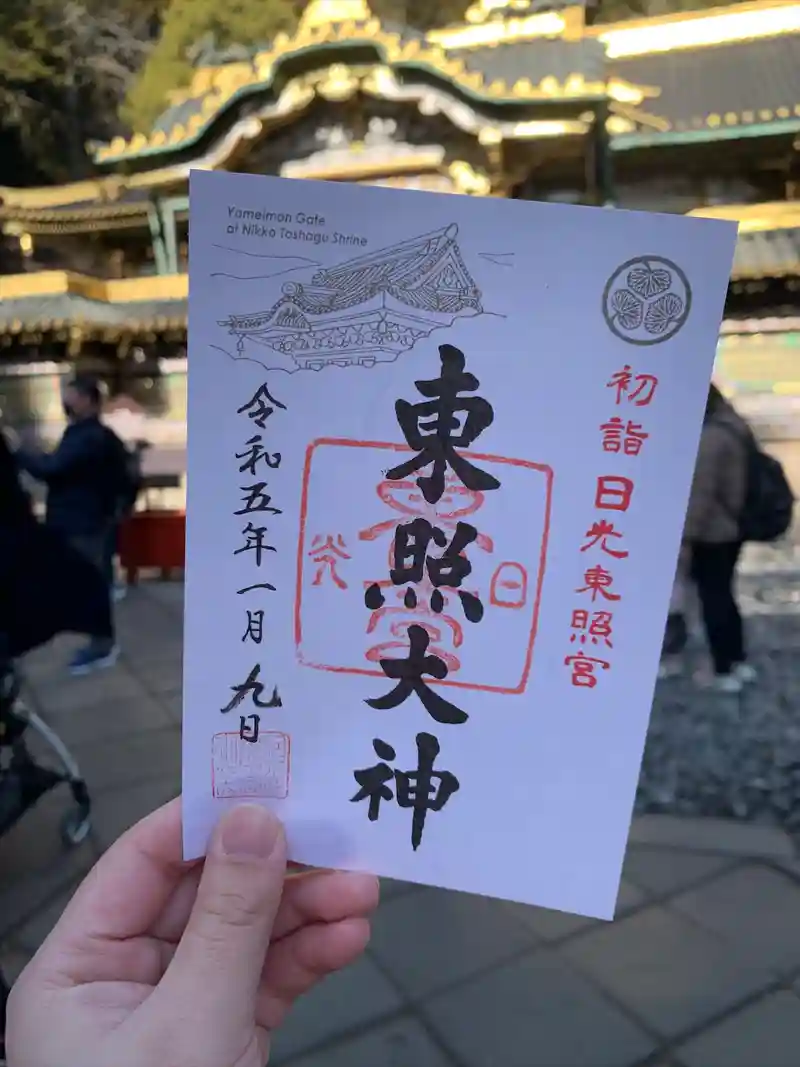 Yomeimon Gate
at Nikko Toshogu Shrine
初詣 日光東照宮
東照大神
令和五年一月九日